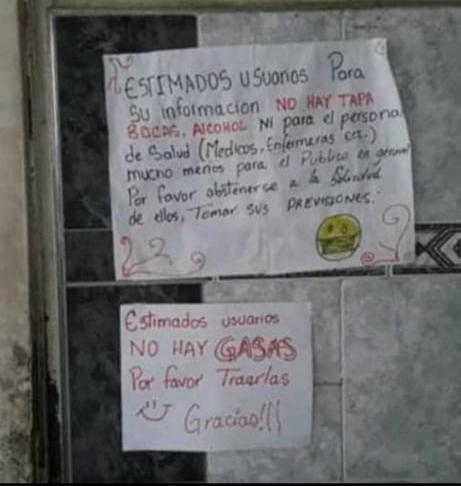 ESTIMADOS USUARIOS Para
Su informacion NO HAY TAPA
BOCAS, ALCOHOL Ni para el personal
de Salud (Medicos, Enfermeras etc.)
mucho menos para el Publico en general
Por favor abstenerse a la Solicitud
de ellos, Tomar sus PREVISIONES.
Estimados usuarios
NO HAY GASAS
Por favor Traerlas
Gracias!!!